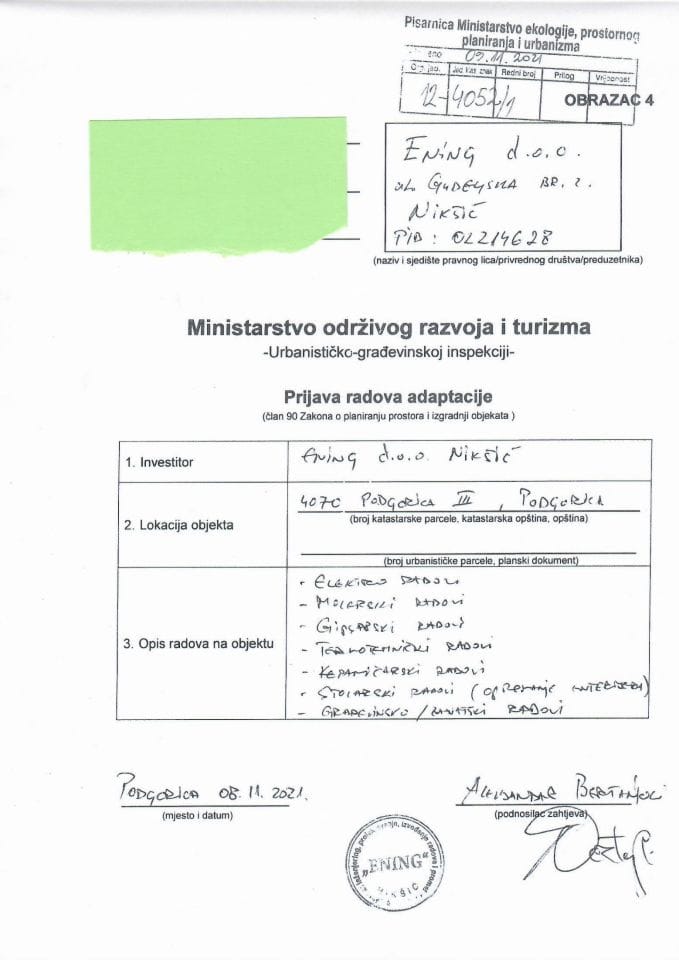 Pisarnica Ministarstvo ekologije, prostornog
planiranja i urbanizma
09.11.2021
Org. jed. Jed. klas. znak Redni broj Prilog Vrijednost
12- 4052/1
OBRAZAC 4
ENING d.o.o.
BR. 2.
NIKŠIĆ
PIB: 02214628
(naziv i sjedište pravnog lica/privrednog društva/preduzetnika)
Ministarstvo održivog razvoja i turizma
-Urbanističko-građevinskoj inspekciji-
Prijava radova adaptacije
(član 90 Zakona o planiranju prostora i izgradnji objekata )
1. Investitor
ENING d.o.o. NIKŠIĆ
2. Lokacija objekta
4070 PODGORICA III, PODGORICA
(broj katastarske parcele, katastarska opština, opština)
(broj urbanističke parcele, planski dokument)
3. Opis radova na objektu
- ELEKTRO RADOVI
- MOLERSKI RADOVI
- GIPSARSKI RADOVI
- TERMOTEHNIČKI RADOVI
- KERAMIČARSKI RADOVI
- STOLARSKI RADOVI (OPREMANJE ENTERIJERA)
- GRAĐEVINSKO/ZANATSKI RADOVI
PODGORICA 08.11.2021.
(mjesto i datum)
ALEKSANDAR
(podnosilac zahtjeva)
"ENING"
NIKŠIĆ